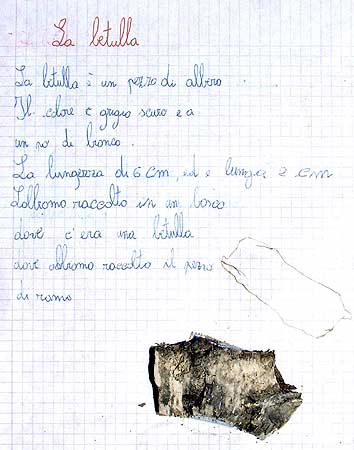 La betulla
La betulla è un pezzo di albero
Il colore è grigio scuro e a
un po' di bianco.
La lunghezza di 6 cm, ed è lunga 2 cm
L'abbiamo raccolto in un bosco
dove c'era una betulla
dove abbiamo raccolto il pezzo
di ramo